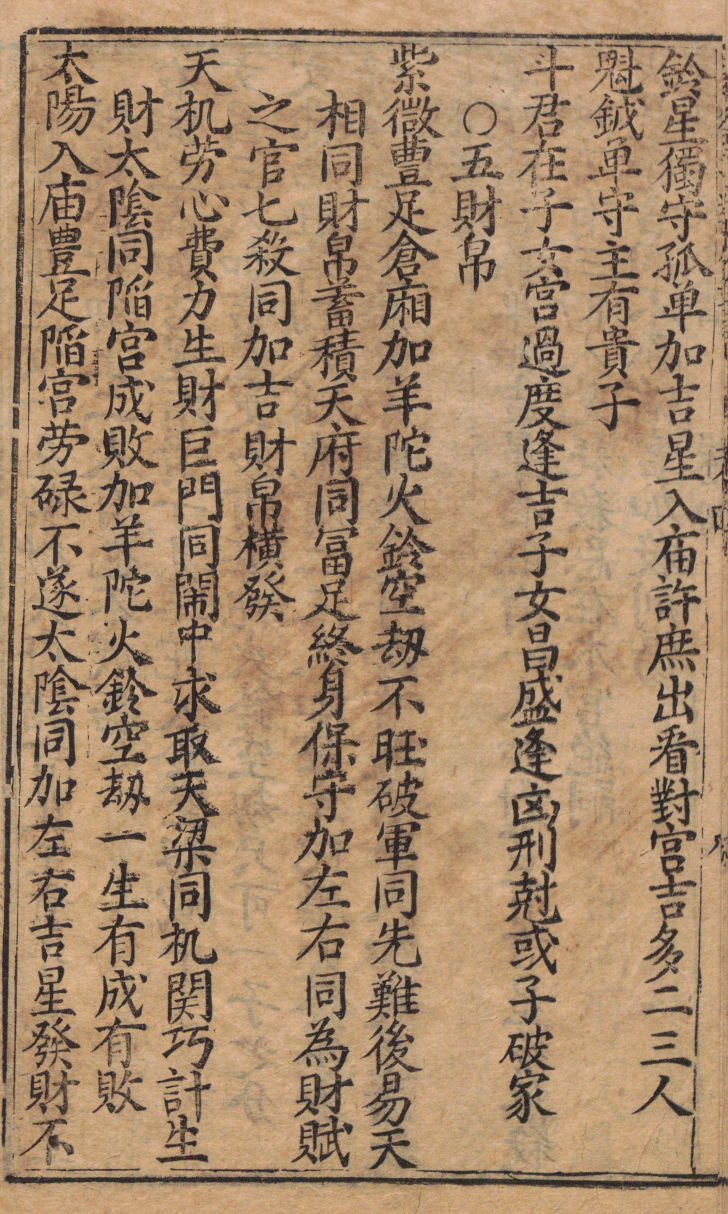 鈴星獨守孤单加吉星入庙許庶出看對宮吉多二三人
魁鉞单守主有貴子
斗君在子女宮過度逢吉子女昌盛逢凶刑尅或子破家
○五財帛
紫微豊足倉廂加羊陀火鈴空刼不旺破軍同先難後易天
相同財帛蓄積天府同冨足終身保守加左右同為財賦
之官七殺同加吉財帛橫發
天机劳心費力生財巨門同鬧中求取天梁同机関巧計生
財太陰同陷宮成敗加羊陀火鈴空刼一生有成有敗
太陽入庙豊足陷宮劳碌不遂太陰同加左右吉星發財不